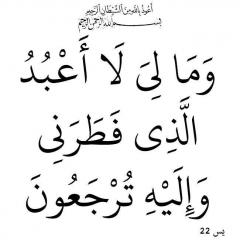 أعوذ بالله من الشيطان الرجيم
بسم الله الرحمن الرحيم
وَمَا لِيَ لَا أَعْبُدُ
الَّذِي فَطَرَنِي
وَإِلَيْهِ تُرْجَعُونَ
يس 22